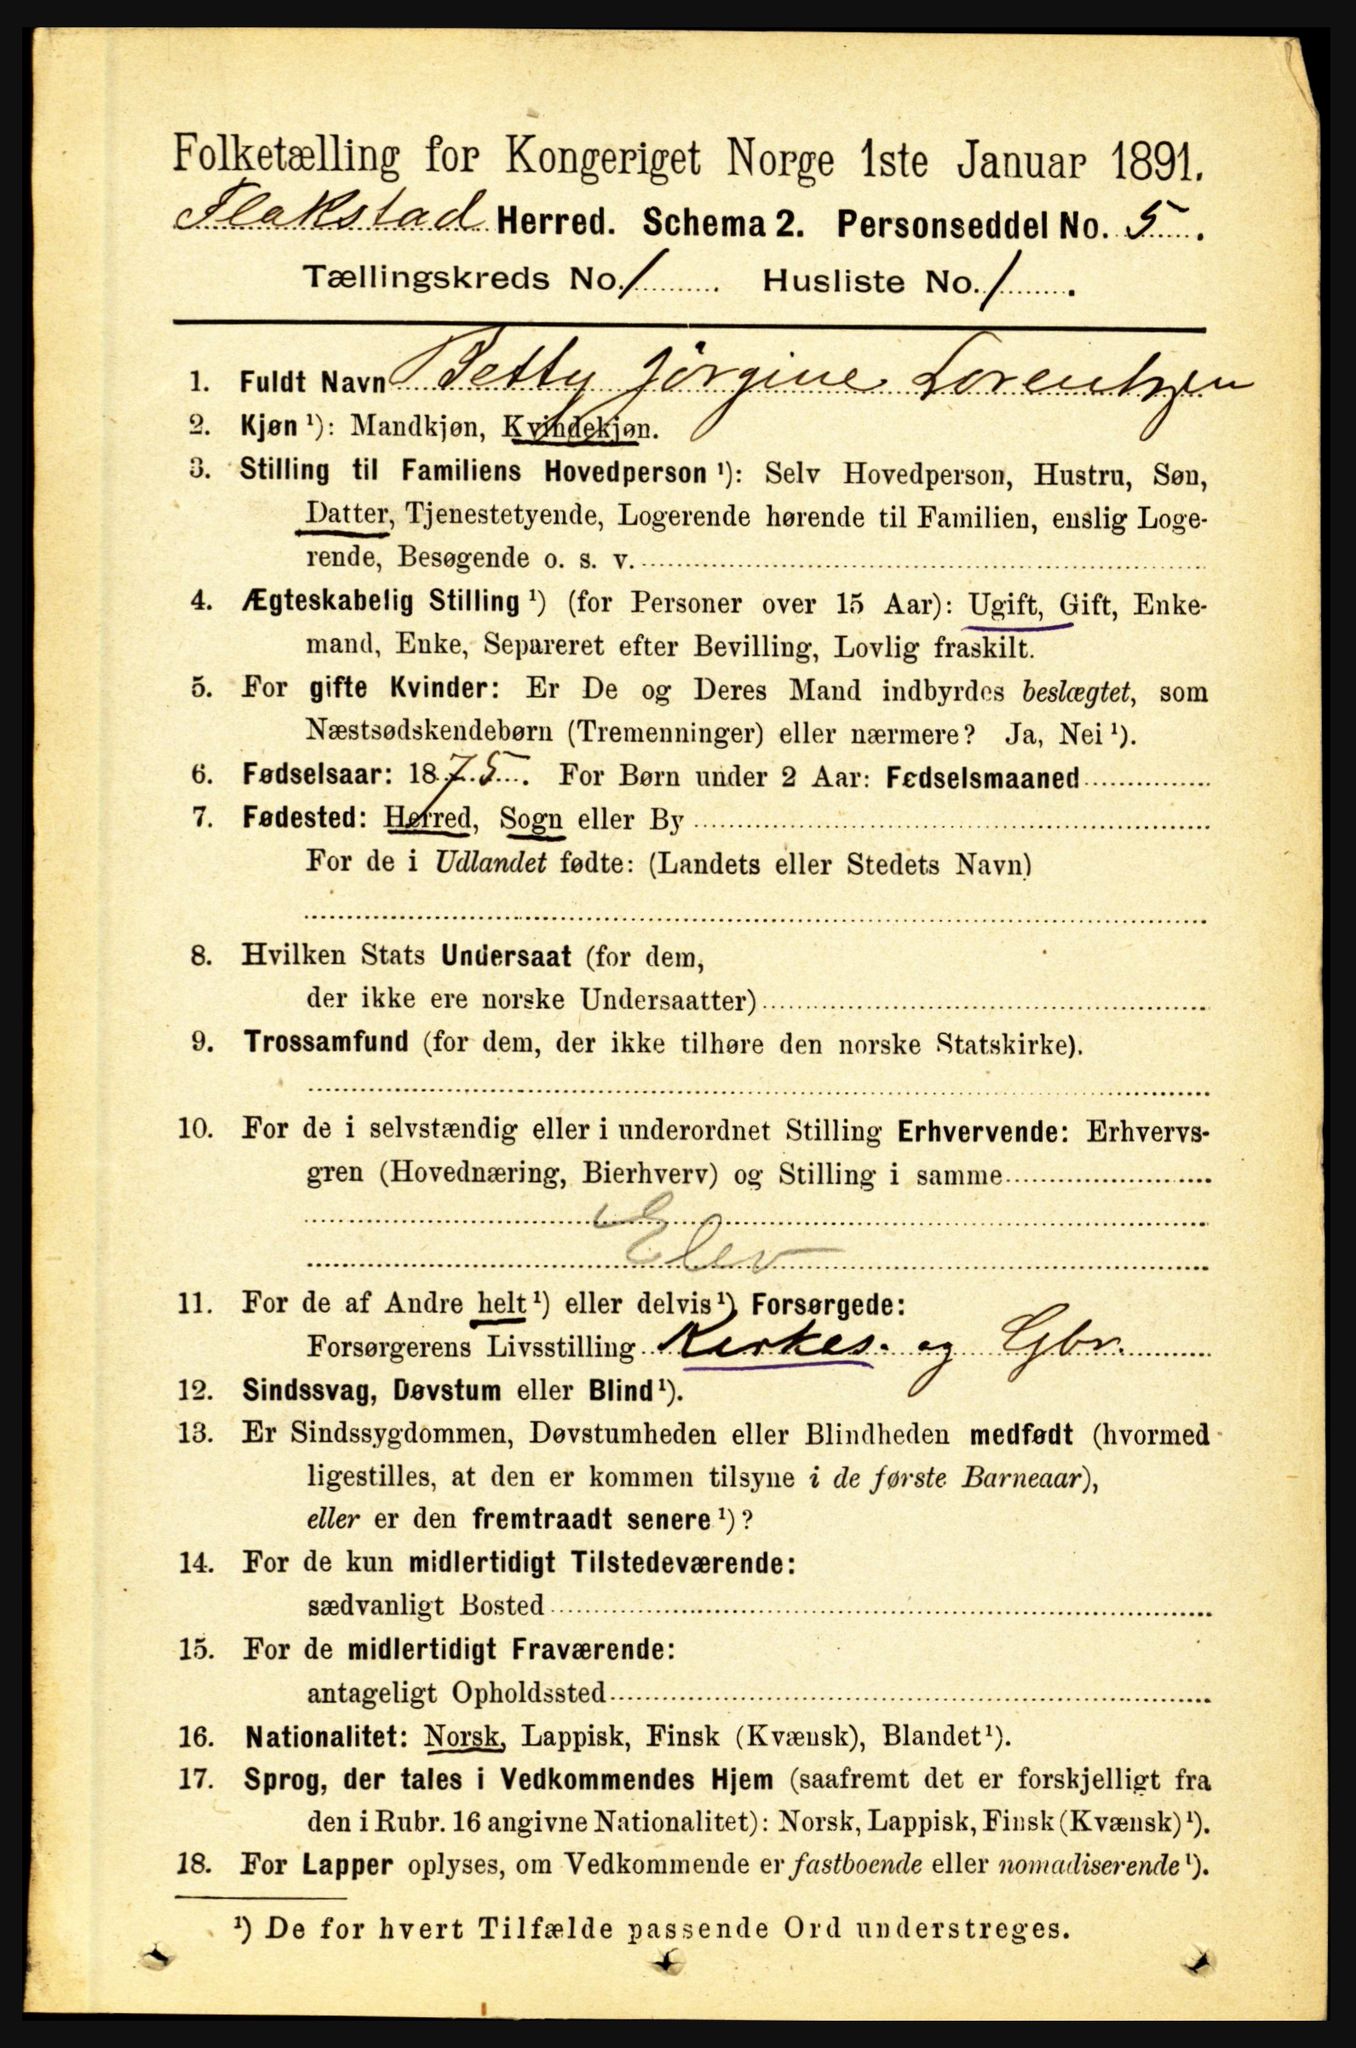 Folketælling for Kongeriget Norge 1ste Januar 1891.
Flakstad Herred. Schema 2. Personseddel No. 5.
Tællingskreds No. 1. Husliste No. 1.
1. Fuldt Navn Betty Jørgine Lorentzen
2. Kjøn ¹): Mandkjøn, Kvindekjøn.
3. Stilling til Familiens Hovedperson ¹): Selv Hovedperson, Hustru, Søn,
Datter, Tjenestetyende, Logerende hørende til Familien, enslig Loge-
rende, Besøgende o. s. v.
4. Ægteskabelig Stilling ¹) (for Personer over 15 Aar): Ugift, Gift, Enke-
mand, Enke, Separeret efter Bevilling, Lovlig fraskilt.
5. For gifte Kvinder: Er De og Deres Mand indbyrdes beslægtet, som
Næstsødskendebørn (Tremenninger) eller nærmere? Ja, Nei ¹).
6. Fødselsaar: 1875. For Børn under 2 Aar: Fødselsmaaned
7. Fødested: Herred, Sogn eller By
For de i Udlandet fødte: (Landets eller Stedets Navn)
8. Hvilken Stats Undersaat (for dem,
der ikke ere norske Undersaatter)
9. Trossamfund (for dem, der ikke tilhøre den norske Statskirke).
10. For de i selvstændig eller i underordnet Stilling Erhvervende: Erhvervs-
gren (Hovednæring, Bierhverv) og Stilling i samme
Elev
11. For de af Andre helt ¹) eller delvis ¹) Forsørgede:
Forsørgerens Livsstilling Kirkes. og Gbr.
12. Sindssvag, Døvstum eller Blind ¹).
13. Er Sindssygdommen, Døvstumheden eller Blindheden medfødt (hvormed
ligestilles, at den er kommen tilsyne i de første Barneaar),
eller er den fremtraadt senere ¹)?
14. For de kun midlertidigt Tilstedeværende:
sædvanligt Bosted
15. For de midlertidigt Fraværende:
antageligt Opholdssted
16. Nationalitet: Norsk, Lappisk, Finsk (Kvænsk), Blandet ¹).
17. Sprog, der tales i Vedkommendes Hjem (saafremt det er forskjelligt fra
den i Rubr. 16 angivne Nationalitet): Norsk, Lappisk, Finsk (Kvænsk) ¹).
18. For Lapper oplyses, om Vedkommende er fastboende eller nomadiserende ¹).
¹) De for hvert Tilfælde passende Ord understreges.